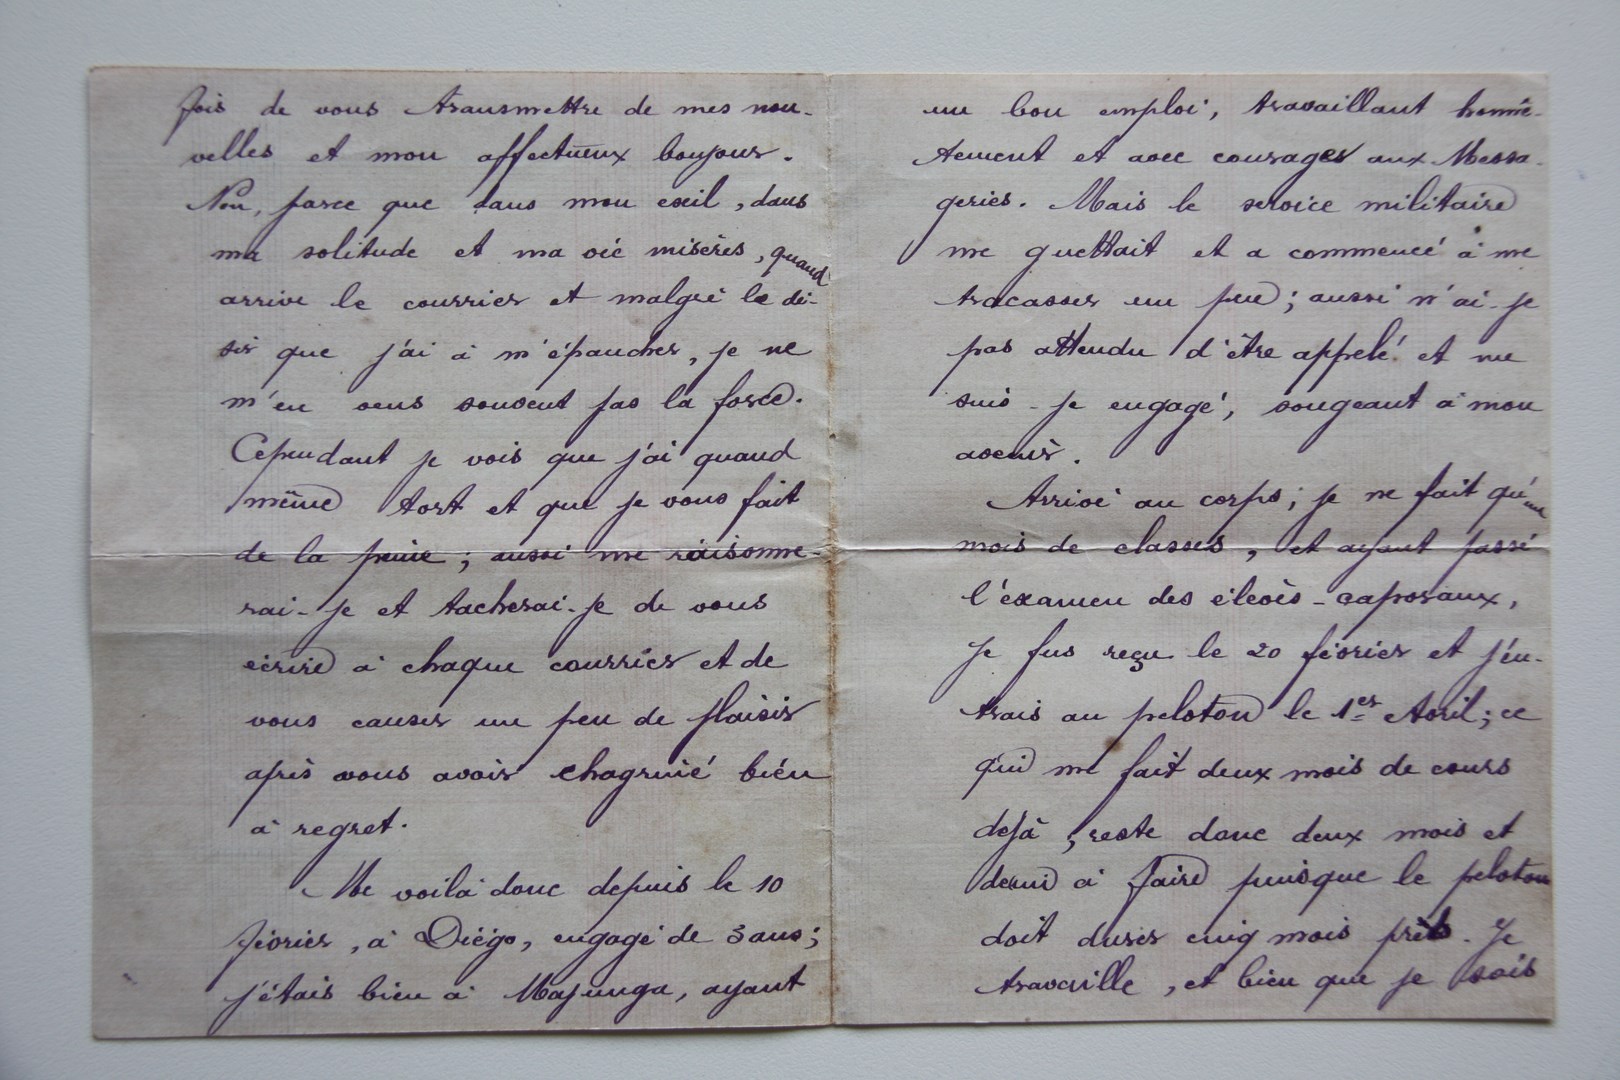 fois de vous transmettre de mes nou-
velles et mon affectueux bonjour.
Non, parce que dans mon exil, dans
ma solitude et ma vie misères, quand
arrive le courrier et malgré le dé-
sir que j'ai à m'épancher, je ne
m'en sens souvent pas la force.
Cependant je vois que j'ai quand
même tort et que je vous fait
de la peine ; aussi me raisonne-
rai-je et tacherai-je de vous
écrire à chaque courrier et de
vous causer un peu de plaisir
après vous avoir chagriné bien
à regret.
Me voilà donc depuis le 10
février, à Diégo, engagé de 3 ans ;
j'étais bien à Majunga, ayant
un bon emploi, travaillant honnê-
tement et avec courages aux Messa-
geries. Mais le service militaire
me guettait et a commencé à me
tracasser un peu ; aussi n'ai-je
pas attendu d'être appelé et me
suis-je engagé, songeant à mon
avenir.
Arrivé au corps ; je ne fait qu'un
mois de classes, et ayant passé
l'éxamen des éleves-caporaux,
je fus reçu le 20 février et j'en-
trais au peloton le 1er Avril ; ce
qui me fait deux mois de cours
déjà, reste donc deux mois et
demi à faire puisque le peloton
doit durer cinq mois près. Je
travaille, et bien que je sois